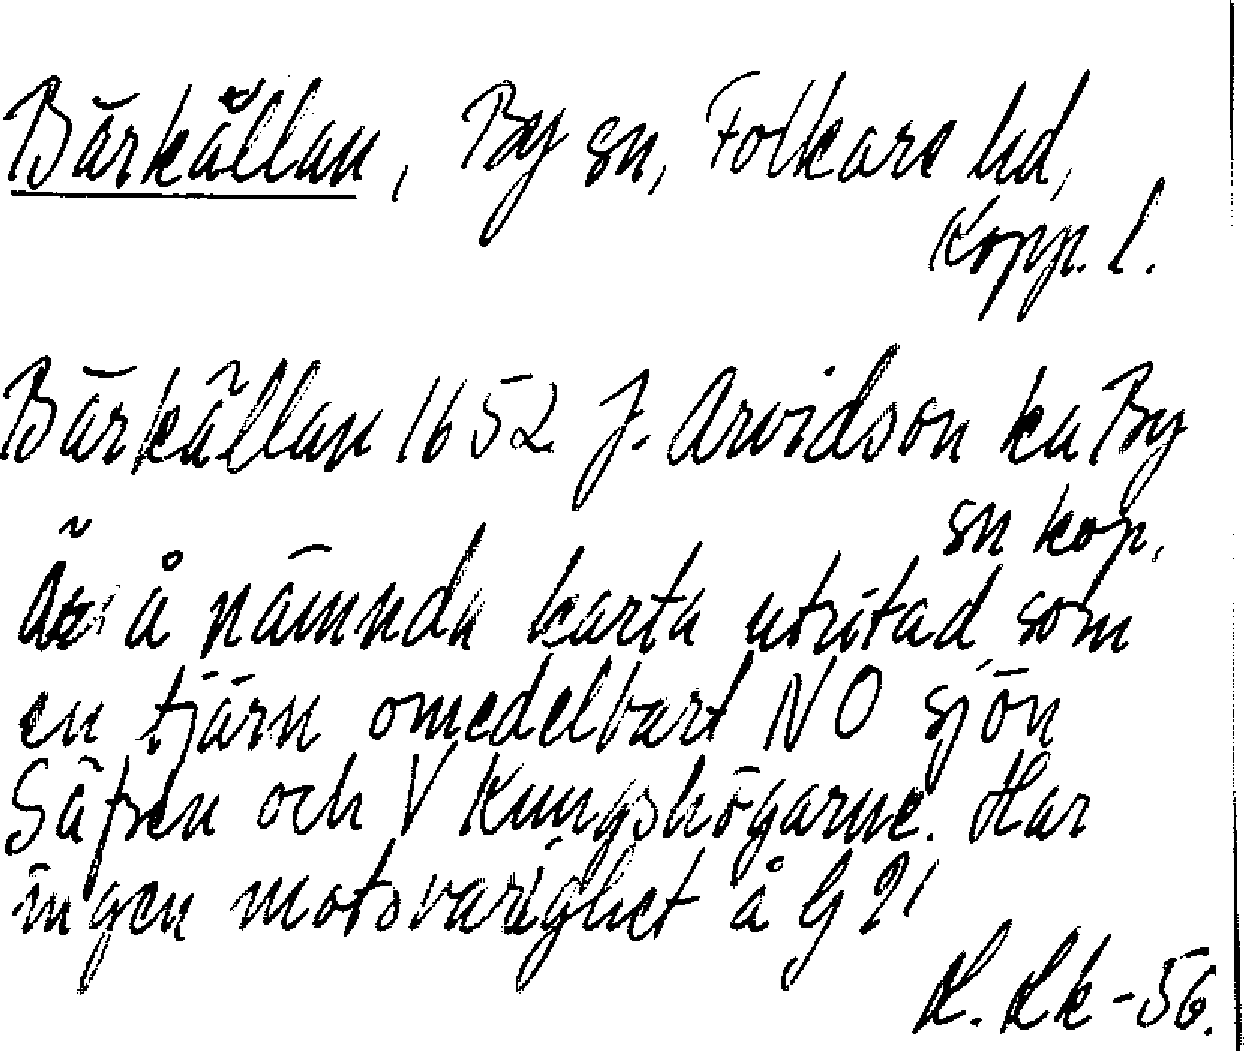 Bärkällan, By sn, Folkare hd,
Kopp. l.
Bärkällan 1652 J. Arvidson ka By
sn kop.
Är å nämnda karta utritad som
en tjärn omedelbart NO sjön
Säfren och V Kungshögarne. Har
ingen motsvarighet å G 91
-56.